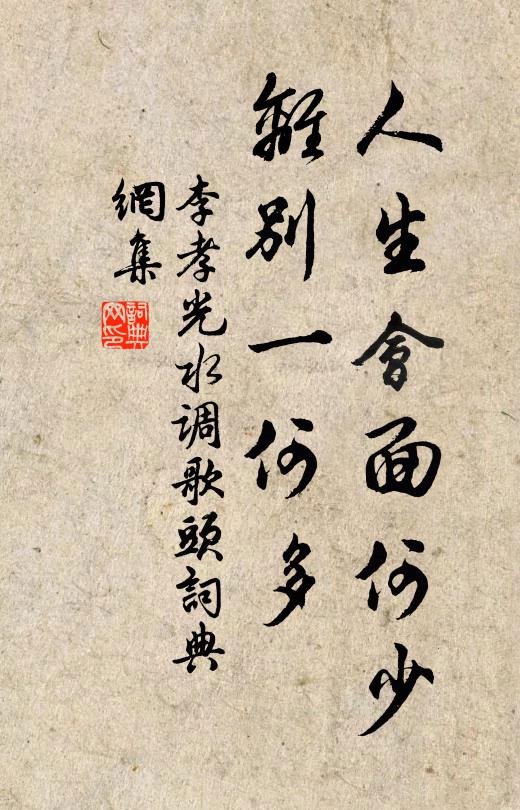 人生會面何少
離別一何多
李孝光水调歌頭詞典
網集
詞典
网印